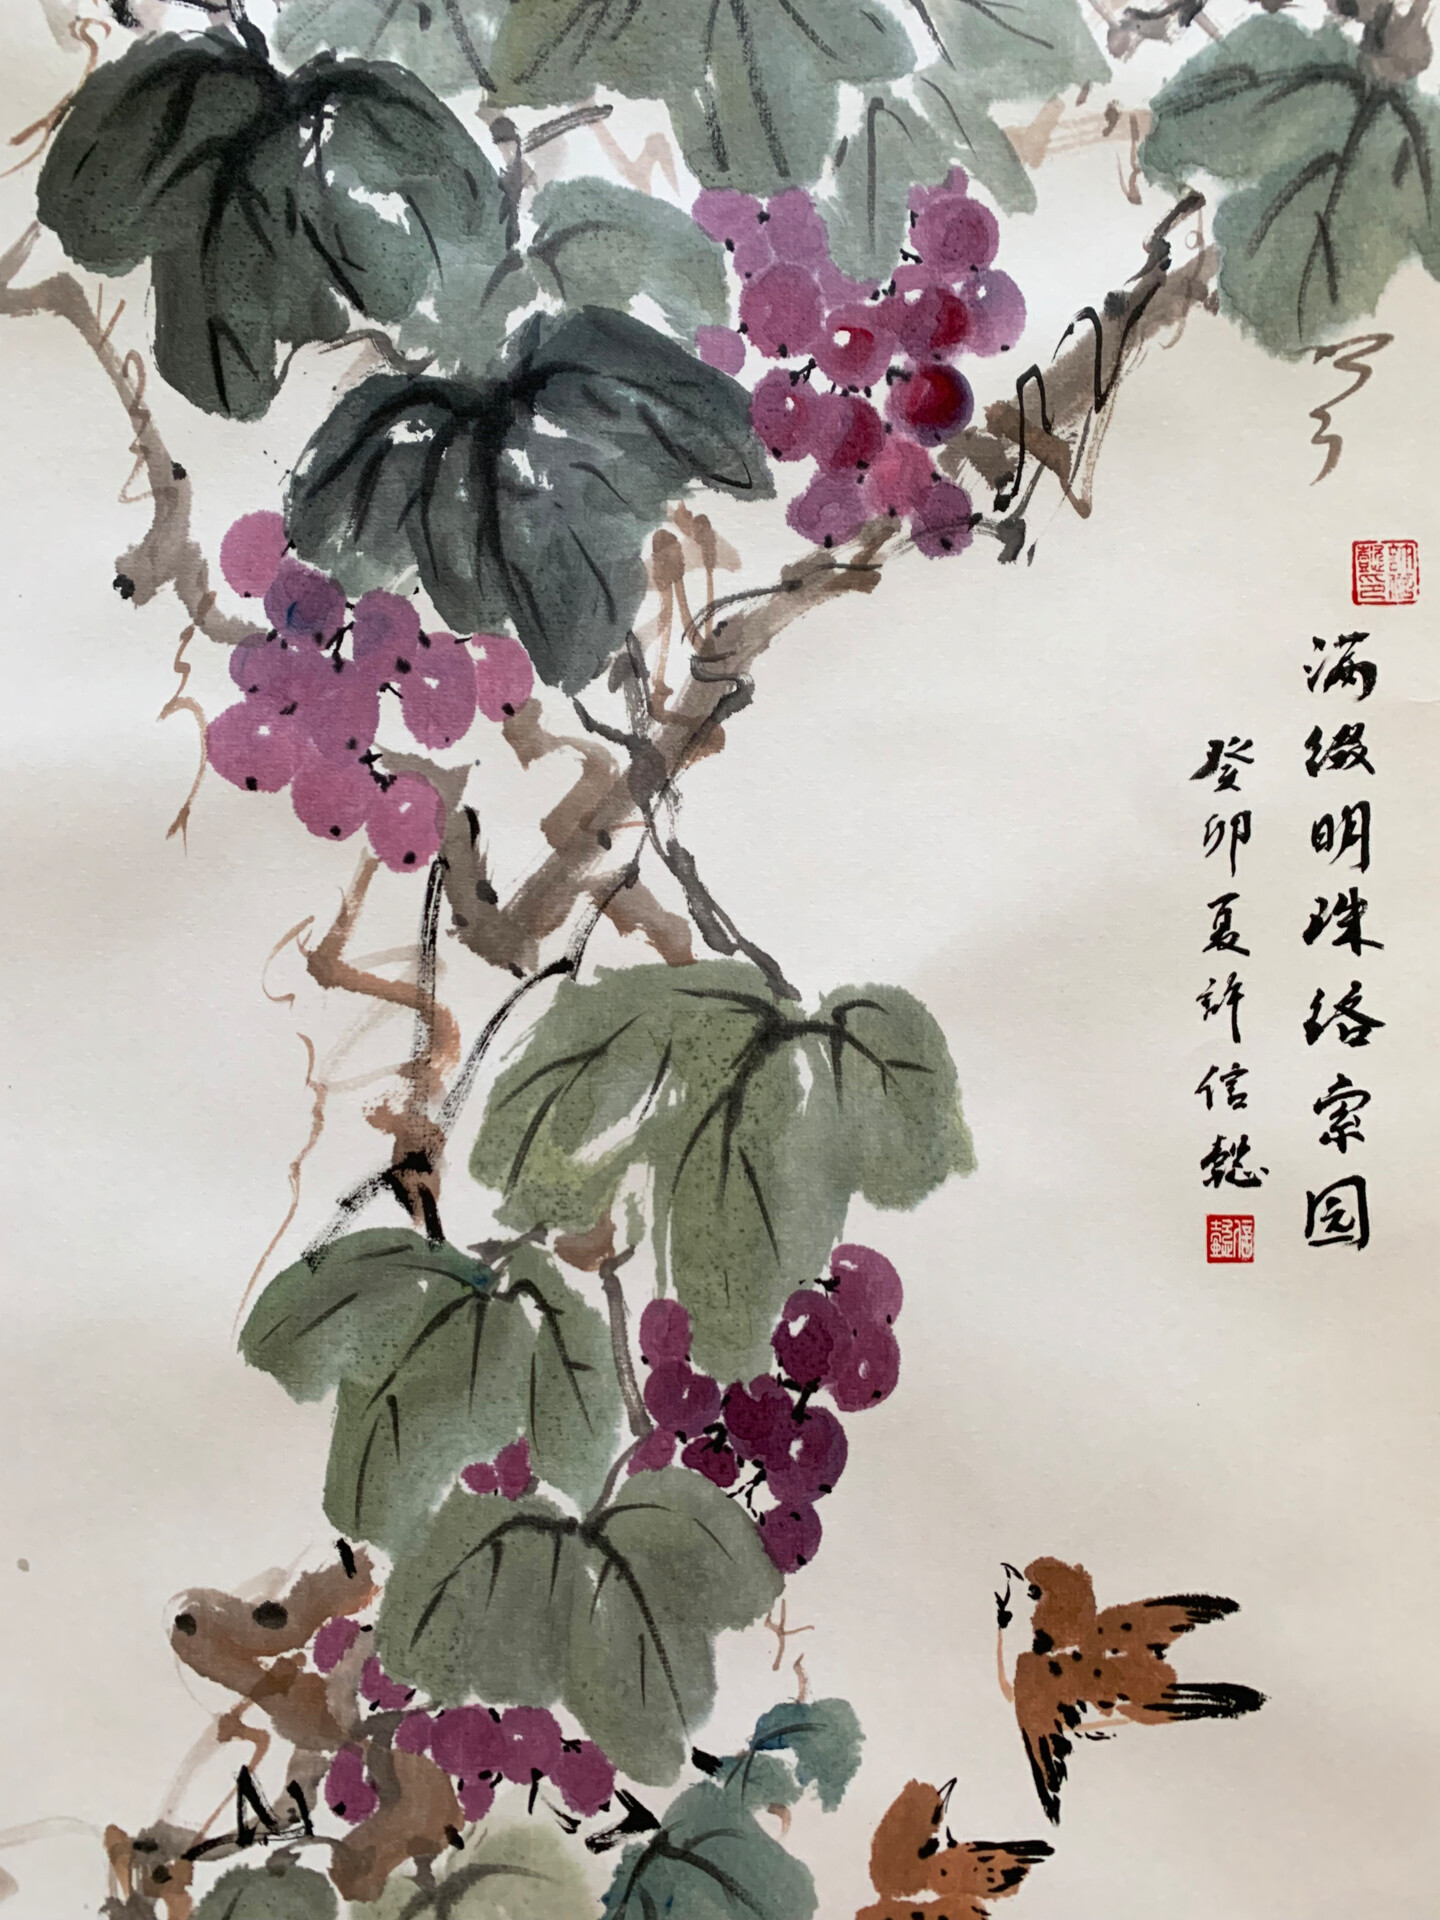 满缀明珠络索园
癸卯夏许信懿